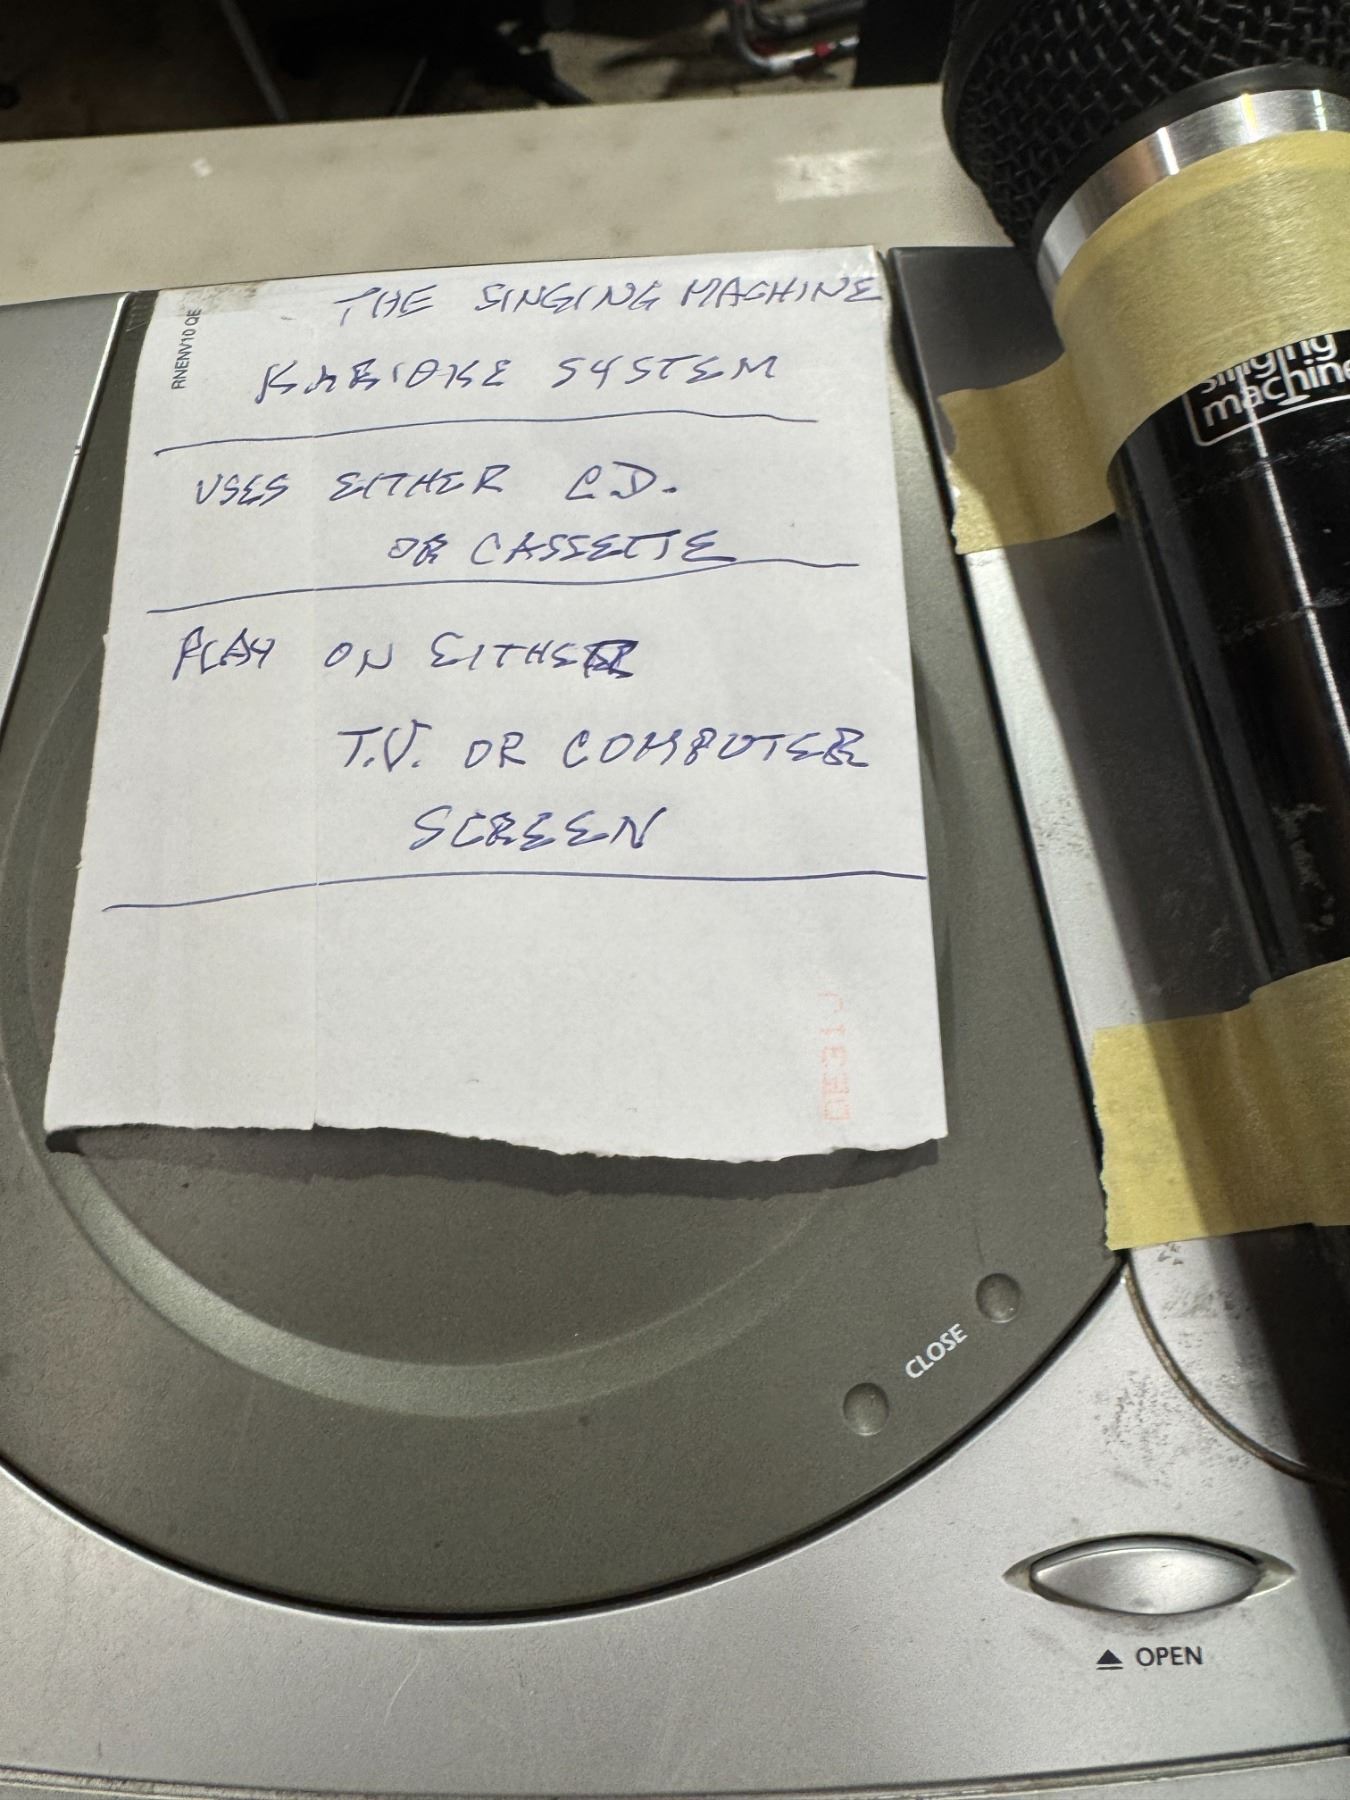 THE SINGING MACHINE
KARIOKE SYSTEM
USES EITHER C.D.
OR CASSETTE
PLAY ON EITHER
T.V. OR COMPUTER
SCREEN
RNENV10 QE
singing
machine
CLOSE
OPEN